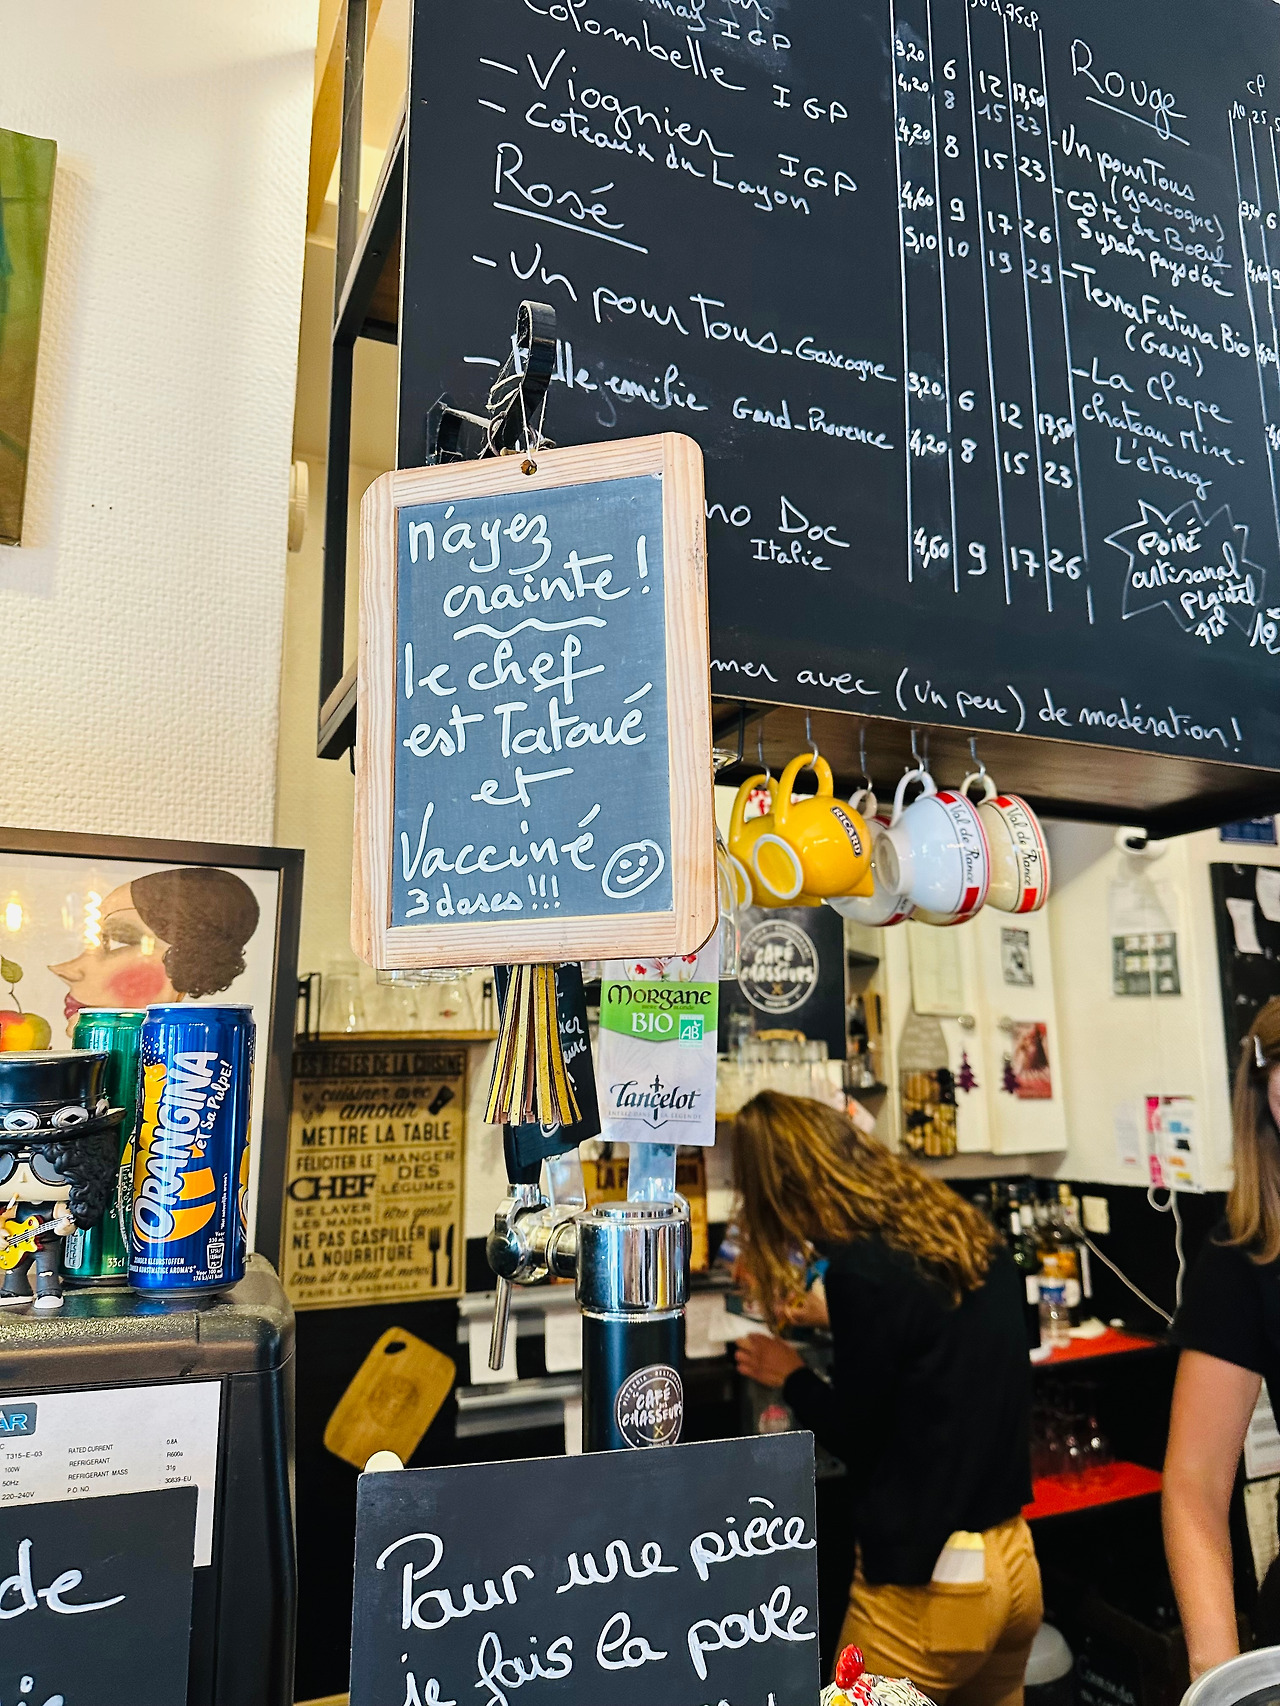 IGP
Colombelle IGP
3,20 6 12 17,50
- Viognier IGP
4,20 8 15 23
- Coteaux du Layon
4,20 8 15 23
4,60 9 17 26
5,10 10 19 29
Rosé
- Un pour Tous - Gascogne
3,20 6 12 17,50
emilie Gard - Provence
4,20 8 15 23
no Doc
Italie
4,60 9 17 26
mer avec (un peu) de modération !
Rouge
- Un pour Tous
(Gascogne)
- Côte de Boeuf
Syrah pays d'óc
- Terra Futura Bio
(Gard)
- La Clape
chateau Mire-
L'etang
Poiré
artisanal
plaintel
n'ayez
crainte !
le chef
est Tatoué
et
Vacciné
3 doses !!!
RICARD
Val de Rance
Val de Rance
CAFÉ
CHASSEURS
MORGANE
BIO
AB
Lancelot
LES RÈGLES DE LA CUISINE
cuisiner avec
amour
METTRE LA TABLE
FÉLICITER LE
CHEF
MANGER
DES
LÉGUMES
SE LAVER
LES MAINS
être gentil
NE PAS GASPILLER
LA NOURRITURE
FAIRE LA VAISSELLE
ORANGINA
et Sa Pulpe!
33cl
CAFÉ
CHASSEURS
T315-E-03
100W
50Hz
220-240V
RATED CURRENT 0.8A
REFRIGERANT R600a
REFRIGERANT MASS 31g
P.O. NO. 30839-EU
de
Pour une pièce
je fais la poule